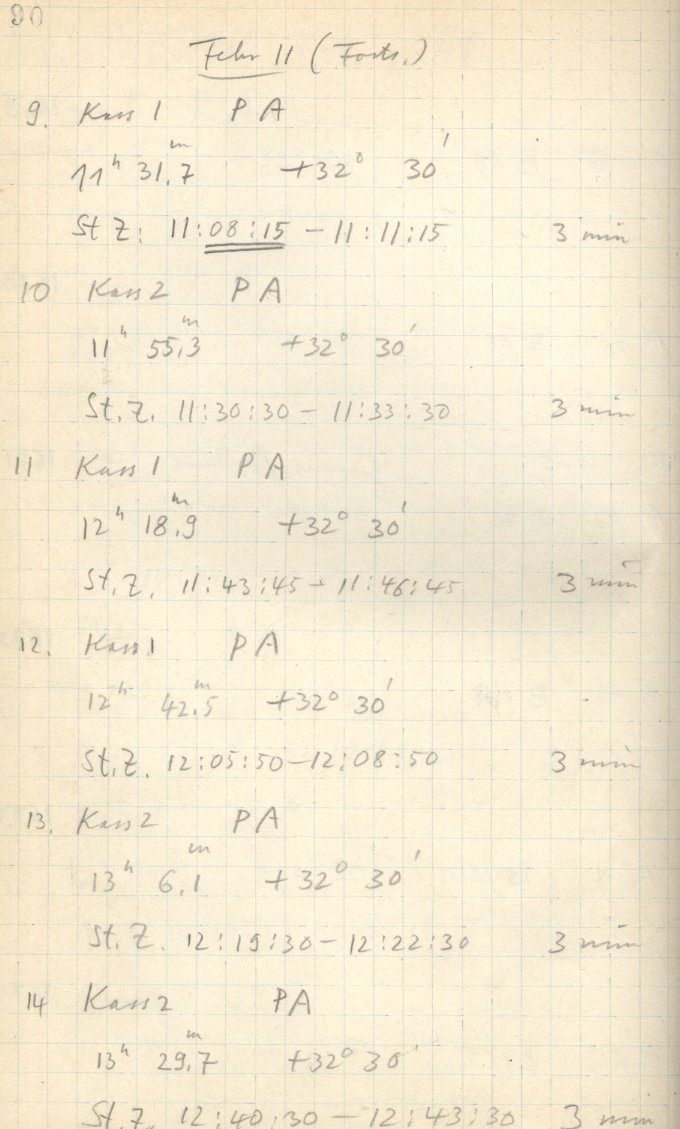 90
Febr 11 (Forts.)
9. Kass 1 P A
11ʰ 31,7ᵐ +32° 30'
St Z: 11:08:15 – 11:11:15 3 min
10 Kass 2 P A
11ʰ 55,3ᵐ +32° 30'
St. Z. 11:30:30 – 11:33:30 3 min
11 Kass 1 P A
12ʰ 18,9ᵐ +32° 30'
St. Z. 11:43:45 – 11:46:45 3 min
12. Kass 1 P A
12ʰ 42,5ᵐ +32° 30'
St. Z. 12:05:50–12:08:50 3 min
13. Kass 2 P A
13ʰ 6,1ᵐ +32° 30'
St. Z. 12:19:30–12:22:30 3 min
14 Kass 2 P A
13ʰ 29,7ᵐ +32° 30'
St. Z. 12:40:30 – 12:43:30 3 min